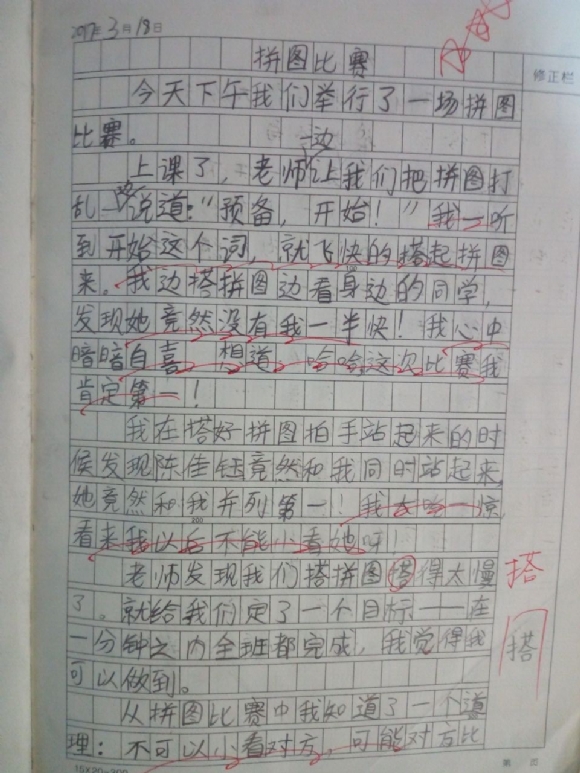 2017年3月18日
拼图比赛
修正栏
今天下午我们举行了一场拼图
比赛。
一边
上课了,老师让我们把拼图打
乱一边说道:“预备,开始!”我一听
到开始这个词,就飞快的搭起拼图
来。我边搭拼图边看身边的同学,
发现她竟然没有我一半快!我心中
暗暗自喜,想道:哈哈,这次比赛我
肯定第一!
我在搭好拼图拍手站起来的时
候发现陈佳钰竟然和我同时站起来,
她竟然和我并列第一!我大吃一惊,
200
看来我以后不能小看她呀!
老师发现我们搭拼图搭得太慢 搭
了。就给我们定了一个目标——在
一分钟之内全班都完成,我觉得我 搭
可以做到。
从拼图比赛中我知道了一个道
理:不可以小看对方,可能对方比
15×20=300 第 页